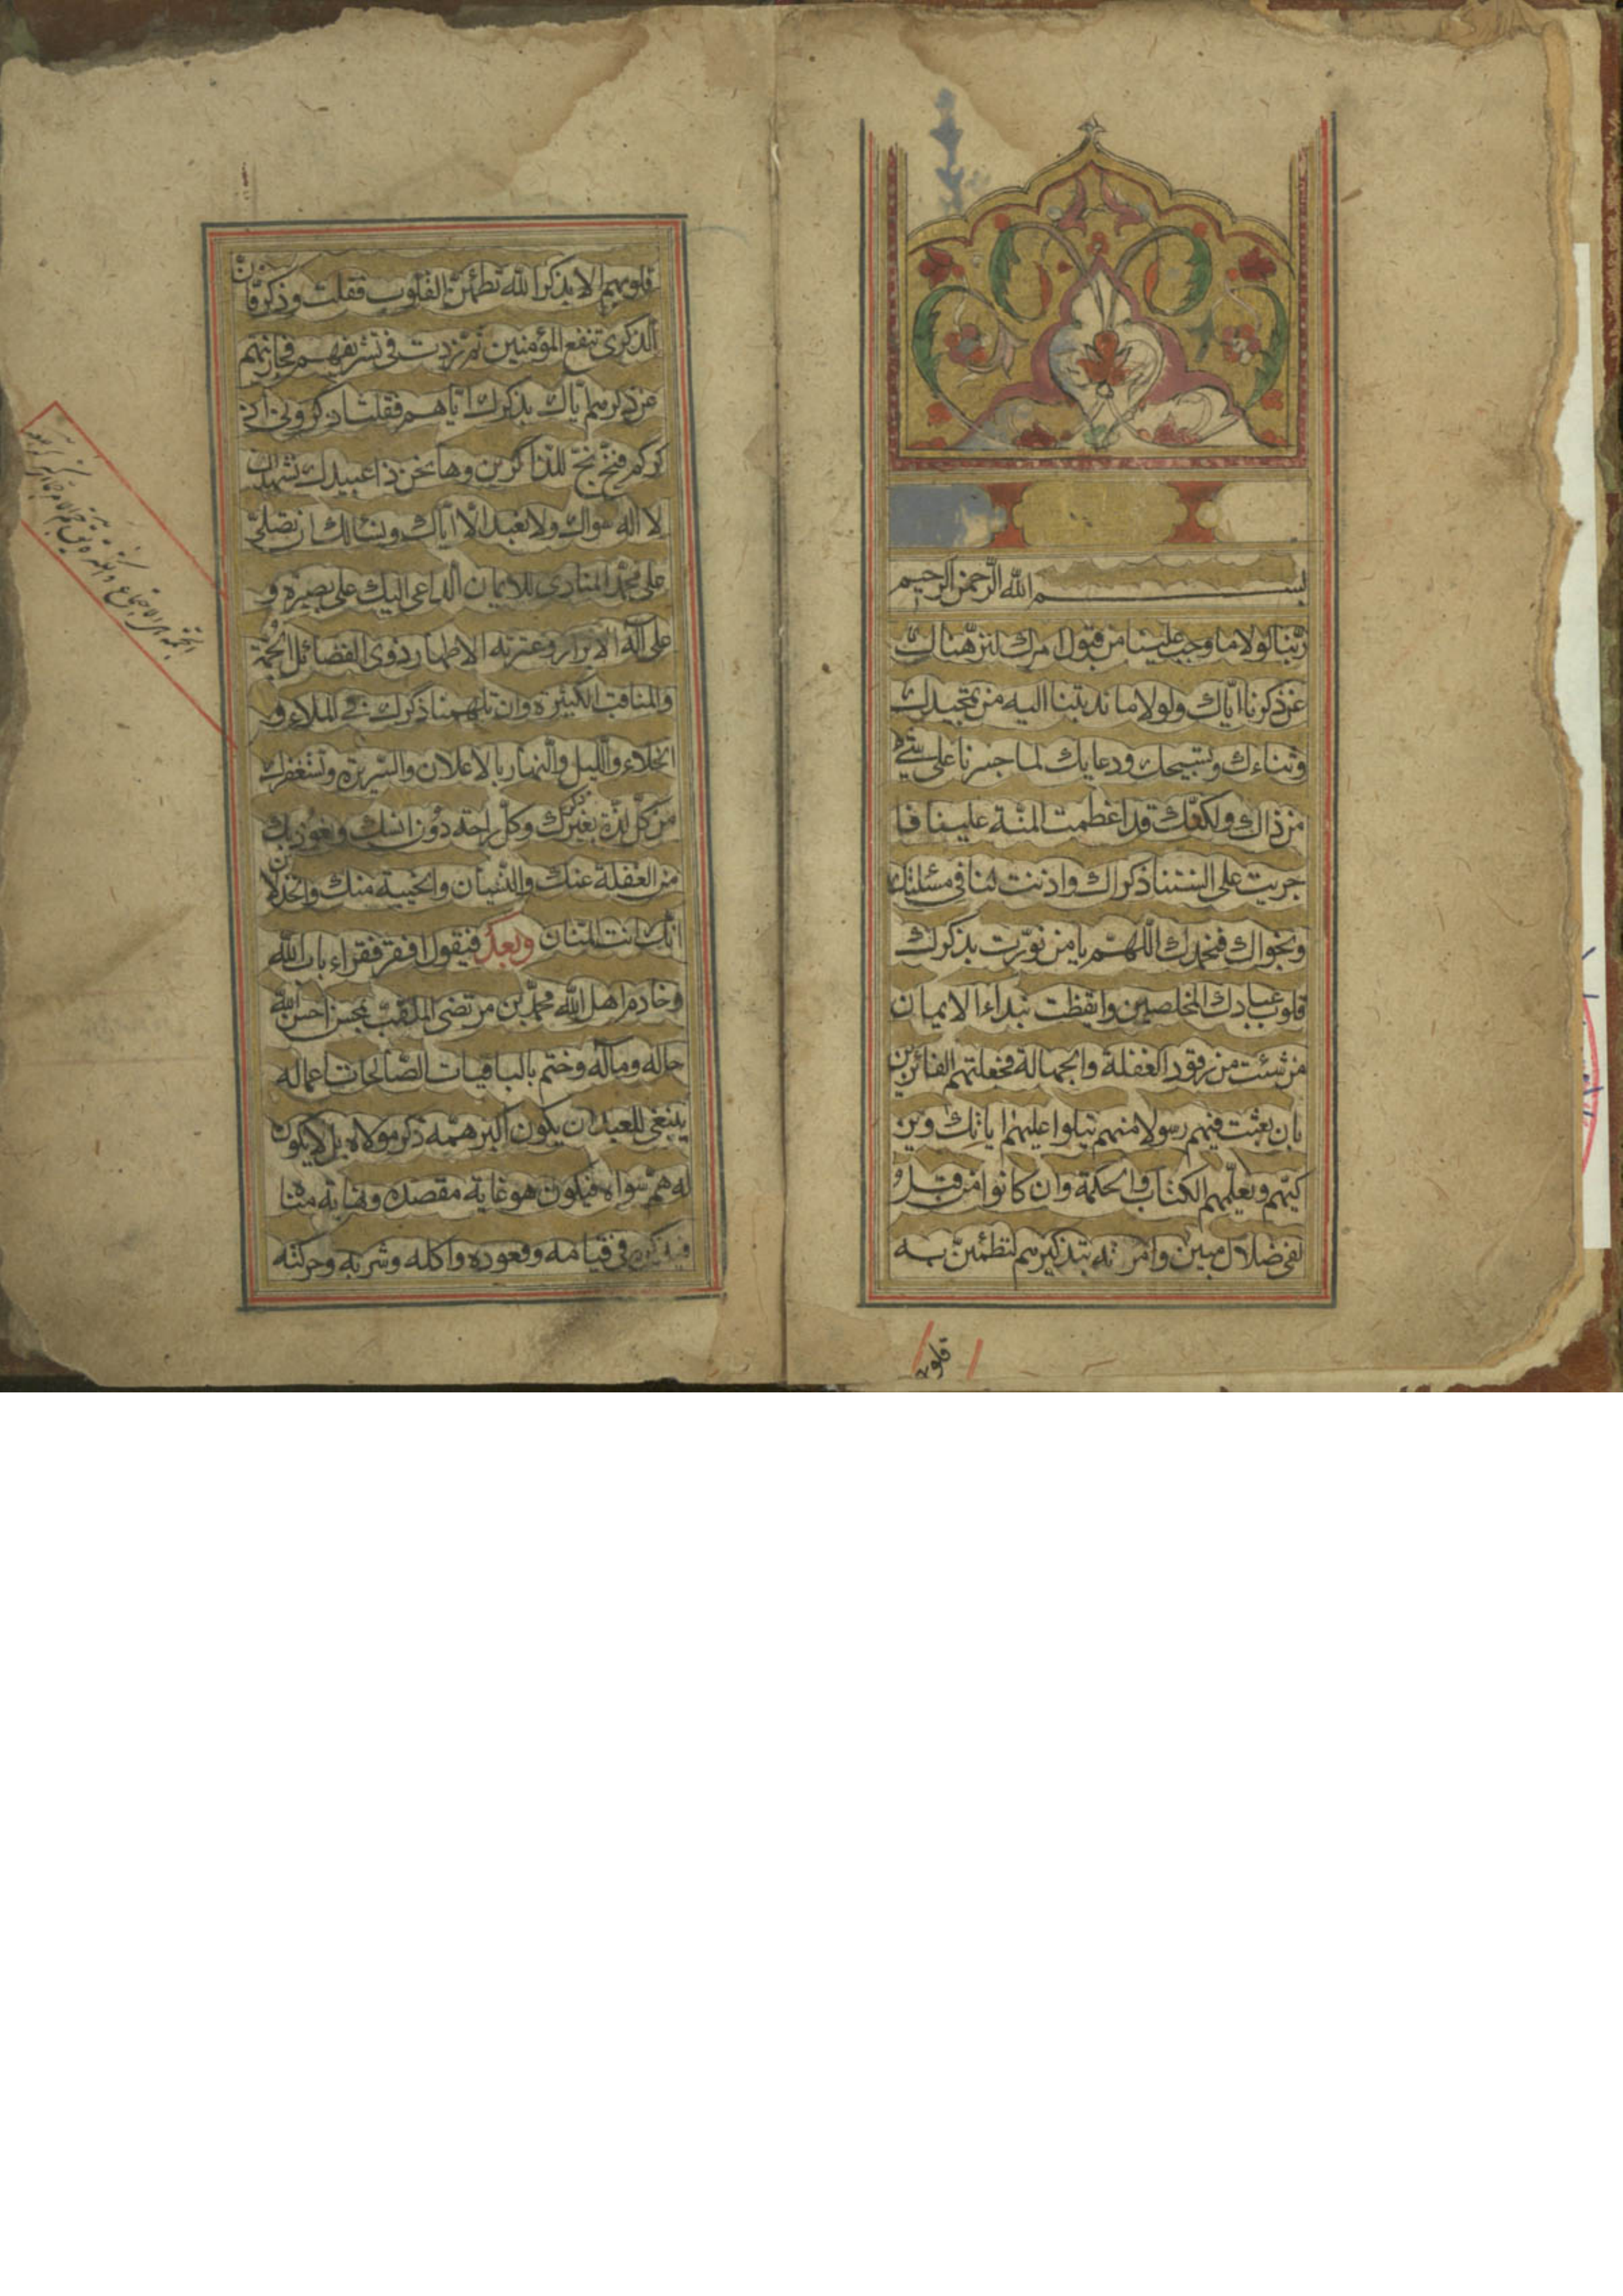 بســـــم الله الرحمن الرحيم
ربّنا لولا ما وجب علينا من قبول امرك لنزهناك
عن ذكرنا ايّاك ولولا ما ندبتنا اليه من تمجيدك
وثناءك وتسبيحك ودعايك لما جسرنا على شئ
من ذاك ولكنّك قد اعظمت المنّة علينا فا
جريت على السنتنا ذكراك واذنت لنا في مسئلتك
ونجواك فنحمدك اللّهمّ يا من نوّرت بذكرك
قلوب عبادك المخلصين وايقظت بنداء الايمان
من شئت من رقود الغفلة والجهالة فجعلتهم الفائزين
بان بعثت فيهم رسولا منهم يتلوا عليهم اياتك ويز
كيّهم ويعلّمهم الكتاب والحكمة وان كانوا من قبل
لفي ضلال مبين وامرته بتذكيرهم لتطمئنّ به
قلوبهم
قلوبهم الا بذكر الله تطمئنّ القلوب فقلت وذكر فانّ
الذكرى تنفع المؤمنين ثم زدت في تشريفهم فجازيتهم
عن ذكرهم ايّاك بذكرك ايّاهم فقلت اذكروني اذ
كركم فبخ بخّ للذاكرين وها نحن ذا عبيدك نشهد ان
لا اله سواك ولا نعبد الّا ايّاك ونسالك ان تصلّي
على محمّد المنادي للايمان الداعي اليك على بصيرة و
على آله الابرار وعترته الاطهار ذوي الفضائل الجمّة
والمناقب الكثيرة وان تلهمنا ذكرك في الملاء و
الخلاء والليل والنهار بالاعلان والسريرة ونستغفرك
من كلّ لذّة بغير ذكرك وكلّ راحة دون انسك ونعوذ بك
من الغفلة عنك والنسيان والخيبة منك والخذلان
انّك انت المنّان وبعد فيقول افقر فقراء باب الله
وخادم اهل الله محمّد بن مرتضى الملقّب بمحسن احسن الله
حاله ومآله وختم بالباقيات الصّالحات اعماله
ينبغي للعبد ان يكون اكبر همّه ذكر مولاه بل لا يكون
له همّ سواه فيكون هو غاية مقصده ونهاية مناه
فيذكره في قيامه وقعوده واكله وشربه وحركته